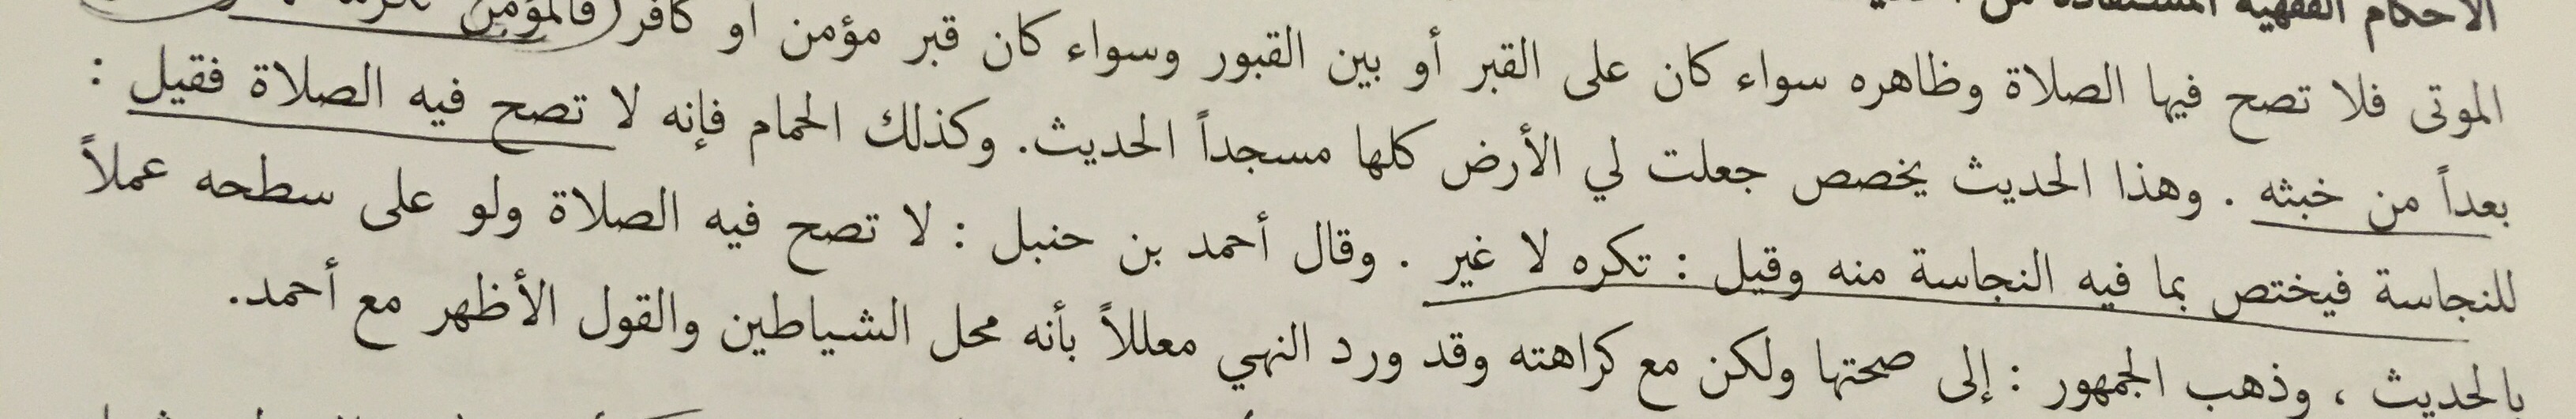 الأحكام الفقهية المستفادة من
الموتى فلا تصح فيها الصلاة وظاهره سواء كان على القبر أو بين القبور وسواء كان قبر مؤمن أو كافر فالمؤمن تكرمة
بعداً من خبثه . وهذا الحديث يخصص جعلت لي الأرض كلها مسجداً الحديث. وكذلك الحمام فإنه لا تصح فيه الصلاة فقيل :
للنجاسة فيختص بما فيه النجاسة منه وقيل : تكره لا غير . وقال أحمد بن حنبل : لا تصح فيه الصلاة ولو على سطحه عملاً
بالحديث ، وذهب الجمهور : إلى صحتها ولكن مع كراهته وقد ورد النهي معللاً بأنه محل الشياطين والقول الأظهر مع أحمد.